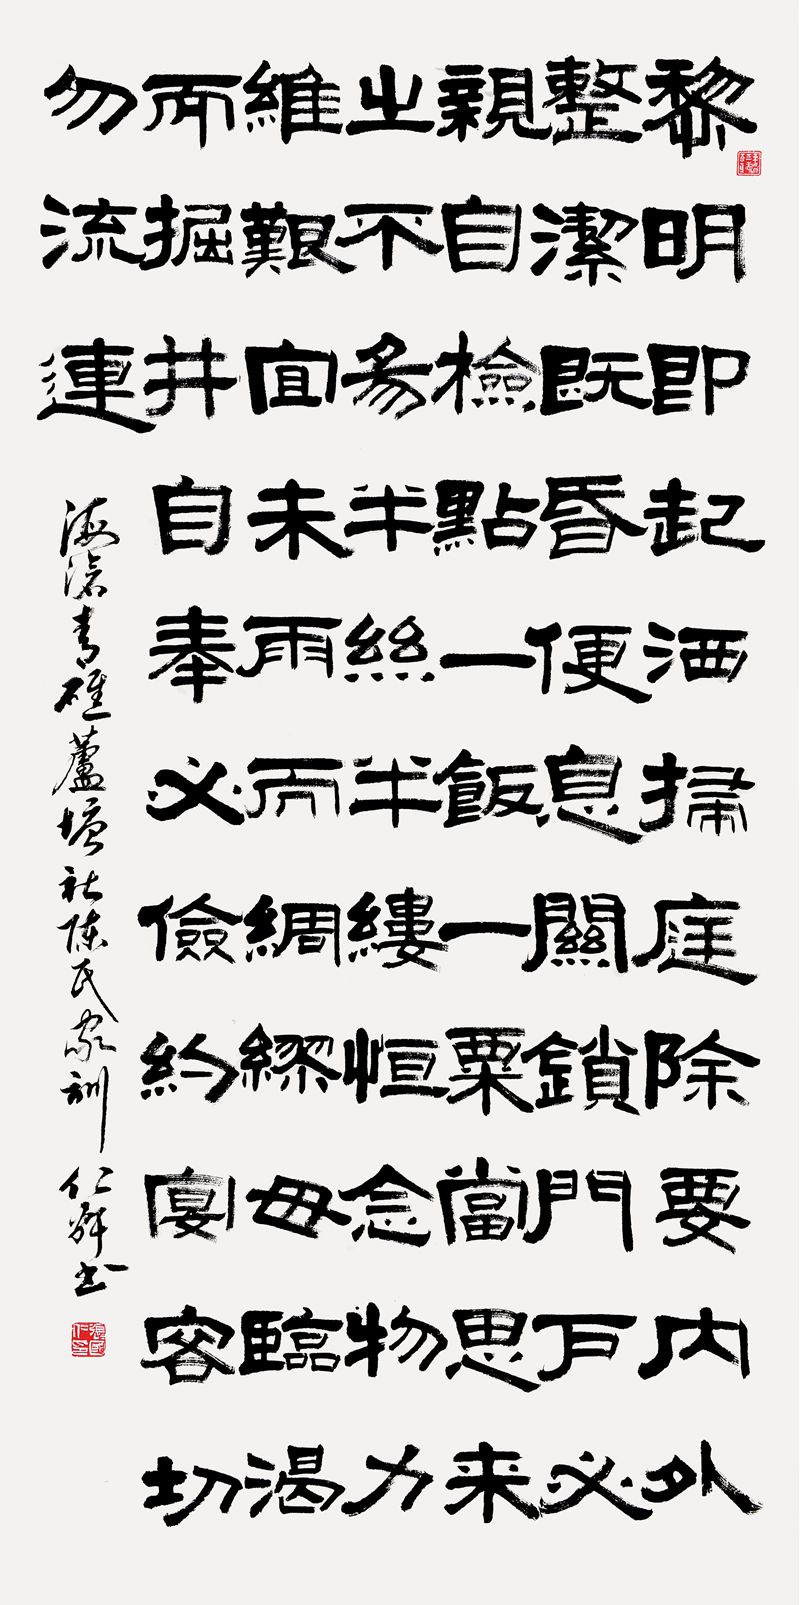 黎明即起洒掃庭除要内外
整潔既昏便息關鎖門戶必
親自檢點一飯一粟當思来
之不易半絲半縷恒念物力
維艱宜未雨而綢繆毋臨渴
而掘井自奉必儉約宴客切
勿流連
海滄青礁蘆塘社陳氏家訓 仁書